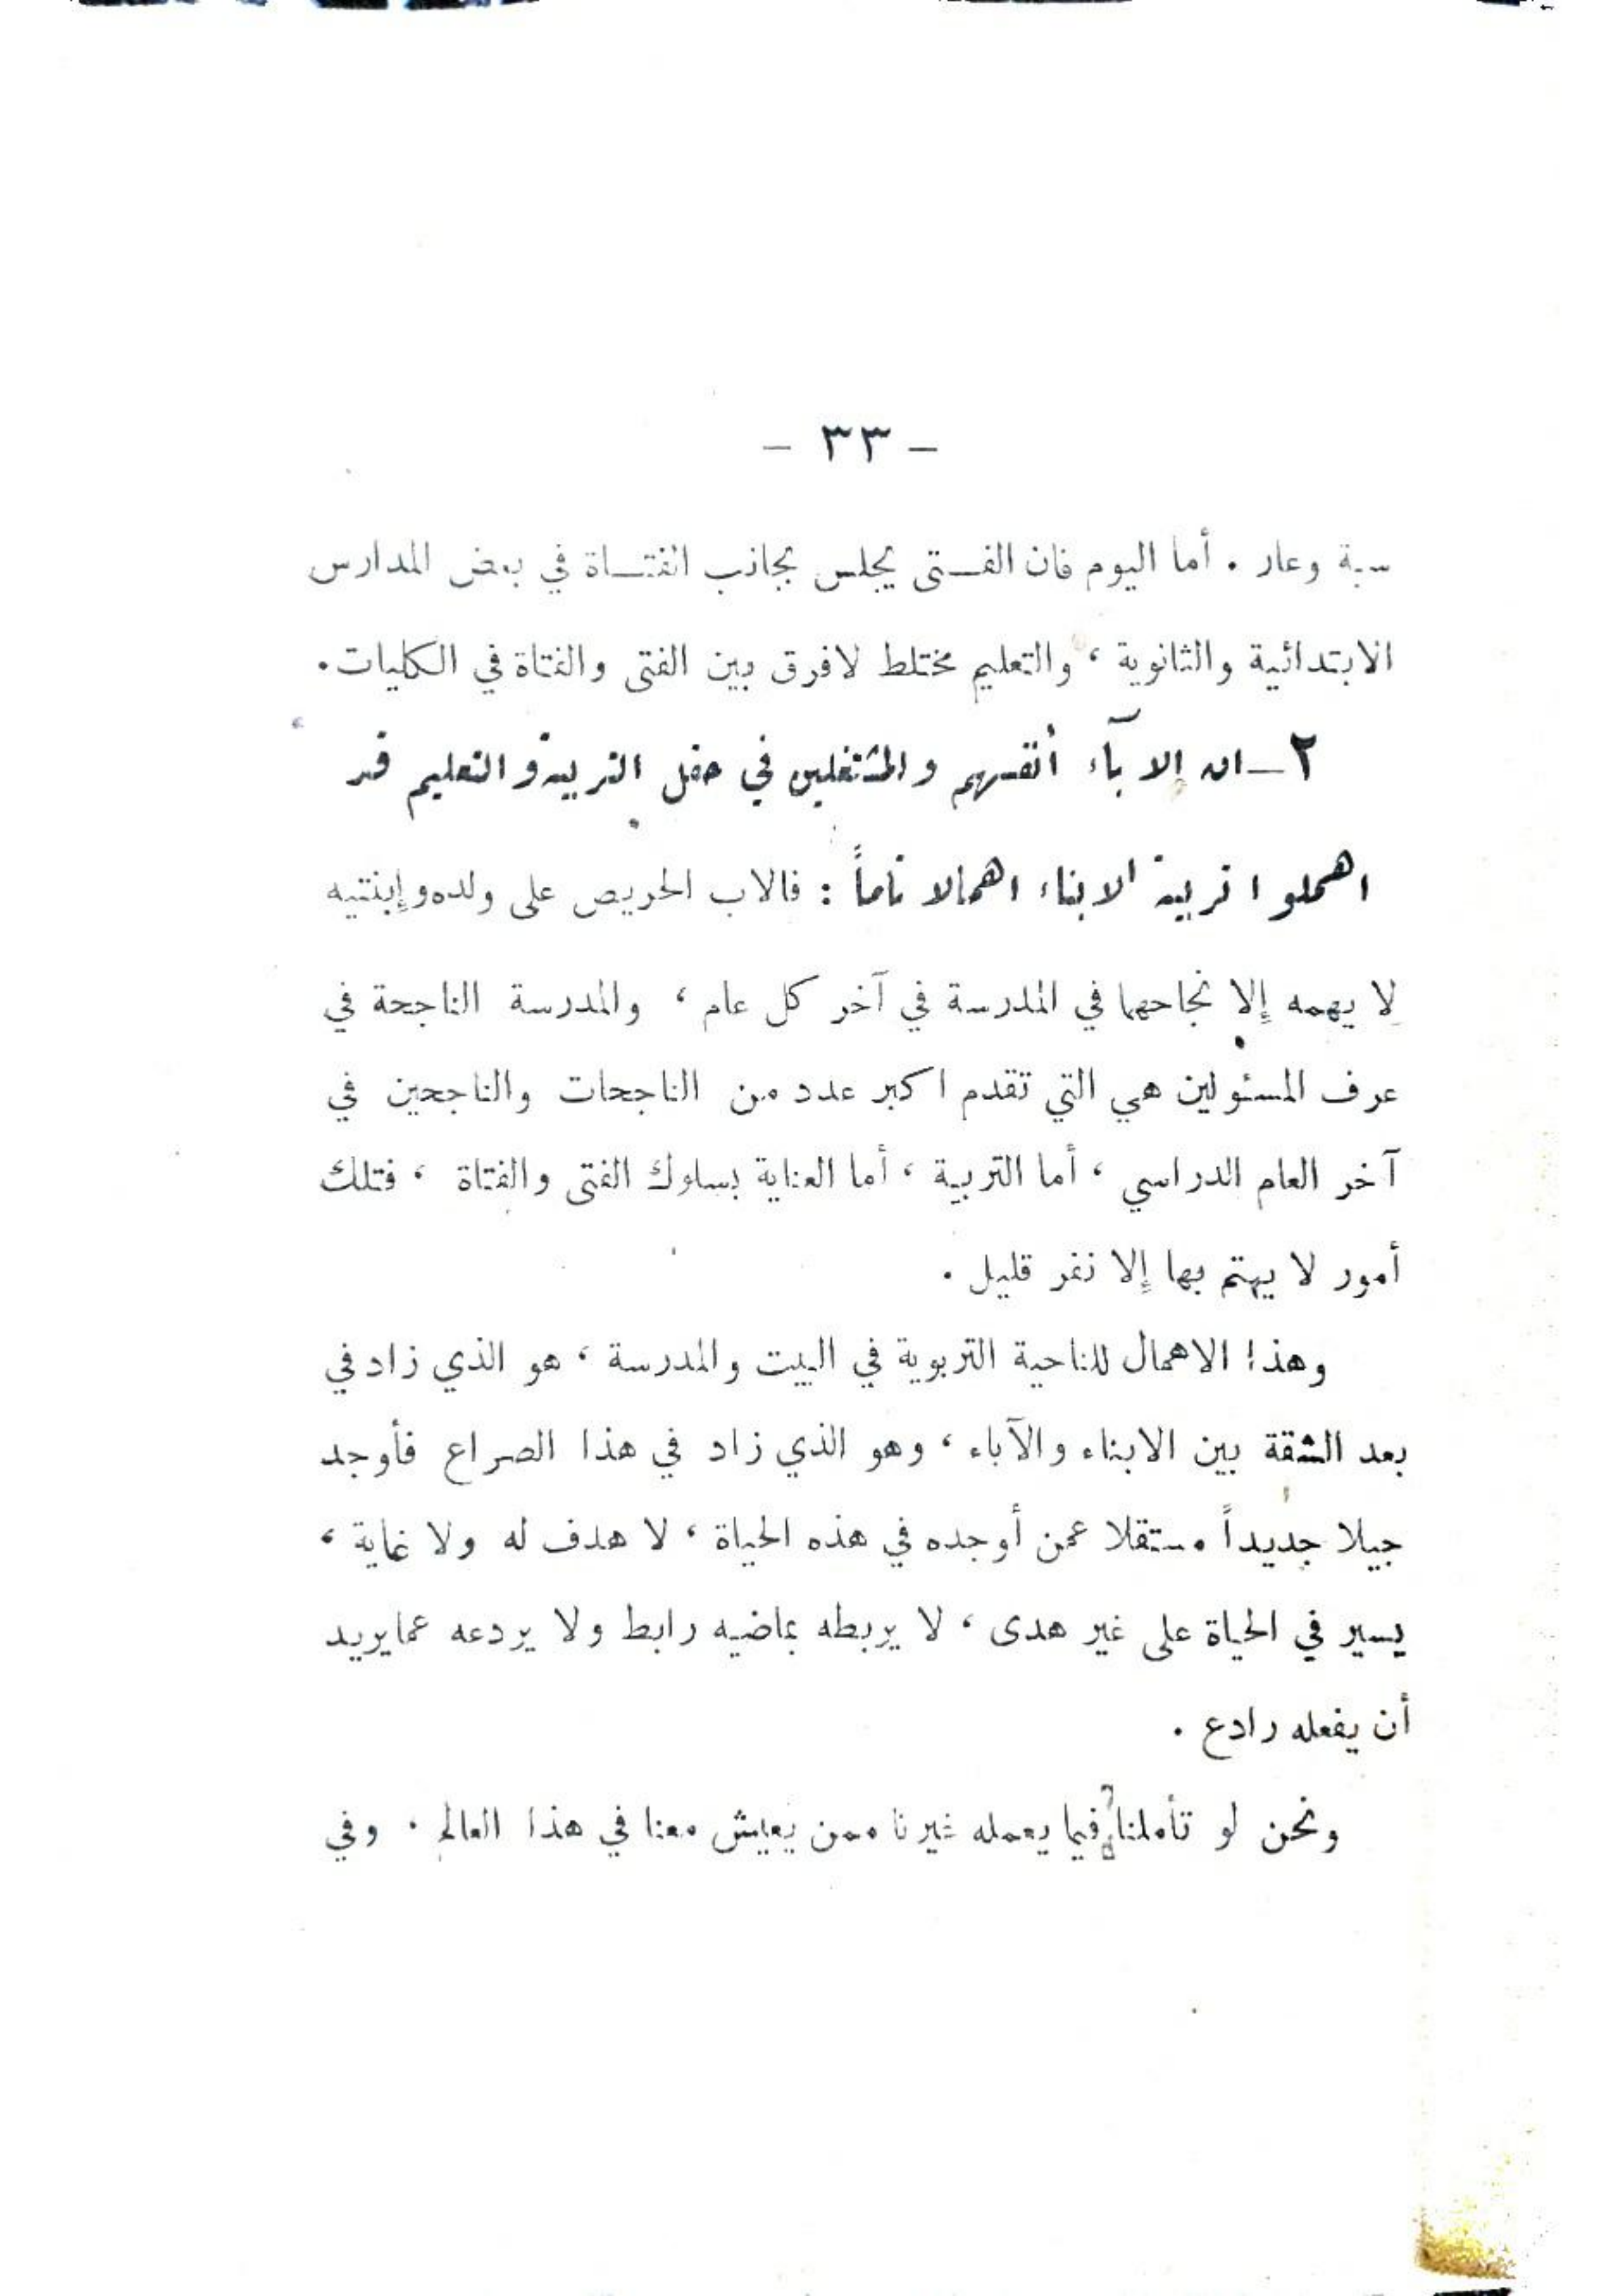 - ٣٣ -
سبة وعار . أما اليوم فان الفـــتى يجلس بجانب الفتـــاة في بعض المدارس
الابتدائية والثانوية ، والتعليم مختلط لافرق بين الفتى والفتاة في الكليات.
٢ــ ان إلا بآء أنفسهم والمشتغلين في حقل التربية والتعليم قد
اهملوا تربية الابناء اهمالا تاماً : فالاب الحريص على ولده وإبنتيه
لا يهمه إلا نجاحهما في المدرسة في آخر كل عام ، والمدرسة الناجحة في
عرف المسئولين هي التي تقدم اكبر عدد من الناجحات والناجحين في
آخر العام الدراسي ، أما التربية ، أما العناية بسلوك الفتى والفتاة ، فتلك
أمور لا يهتم بها إلا نفر قليل .
وهذا الاهمال للناحية التربوية في البيت والمدرسة ، هو الذي زاد في
بعد الشقة بين الابناء والآباء ، وهو الذي زاد في هذا الصراع فأوجد
جيلا جديداً مستقلا عمن أوجده في هذه الحياة ، لا هدف له ولا غاية ،
يسير في الحياة على غير هدى ، لا يربطه بماضيه رابط ولا يردعه عمايريد
أن يفعله رادع .
ونحن لو تأملنا فيما يعمله غيرنا ممن يعيش معنا في هذا العالم . وفي